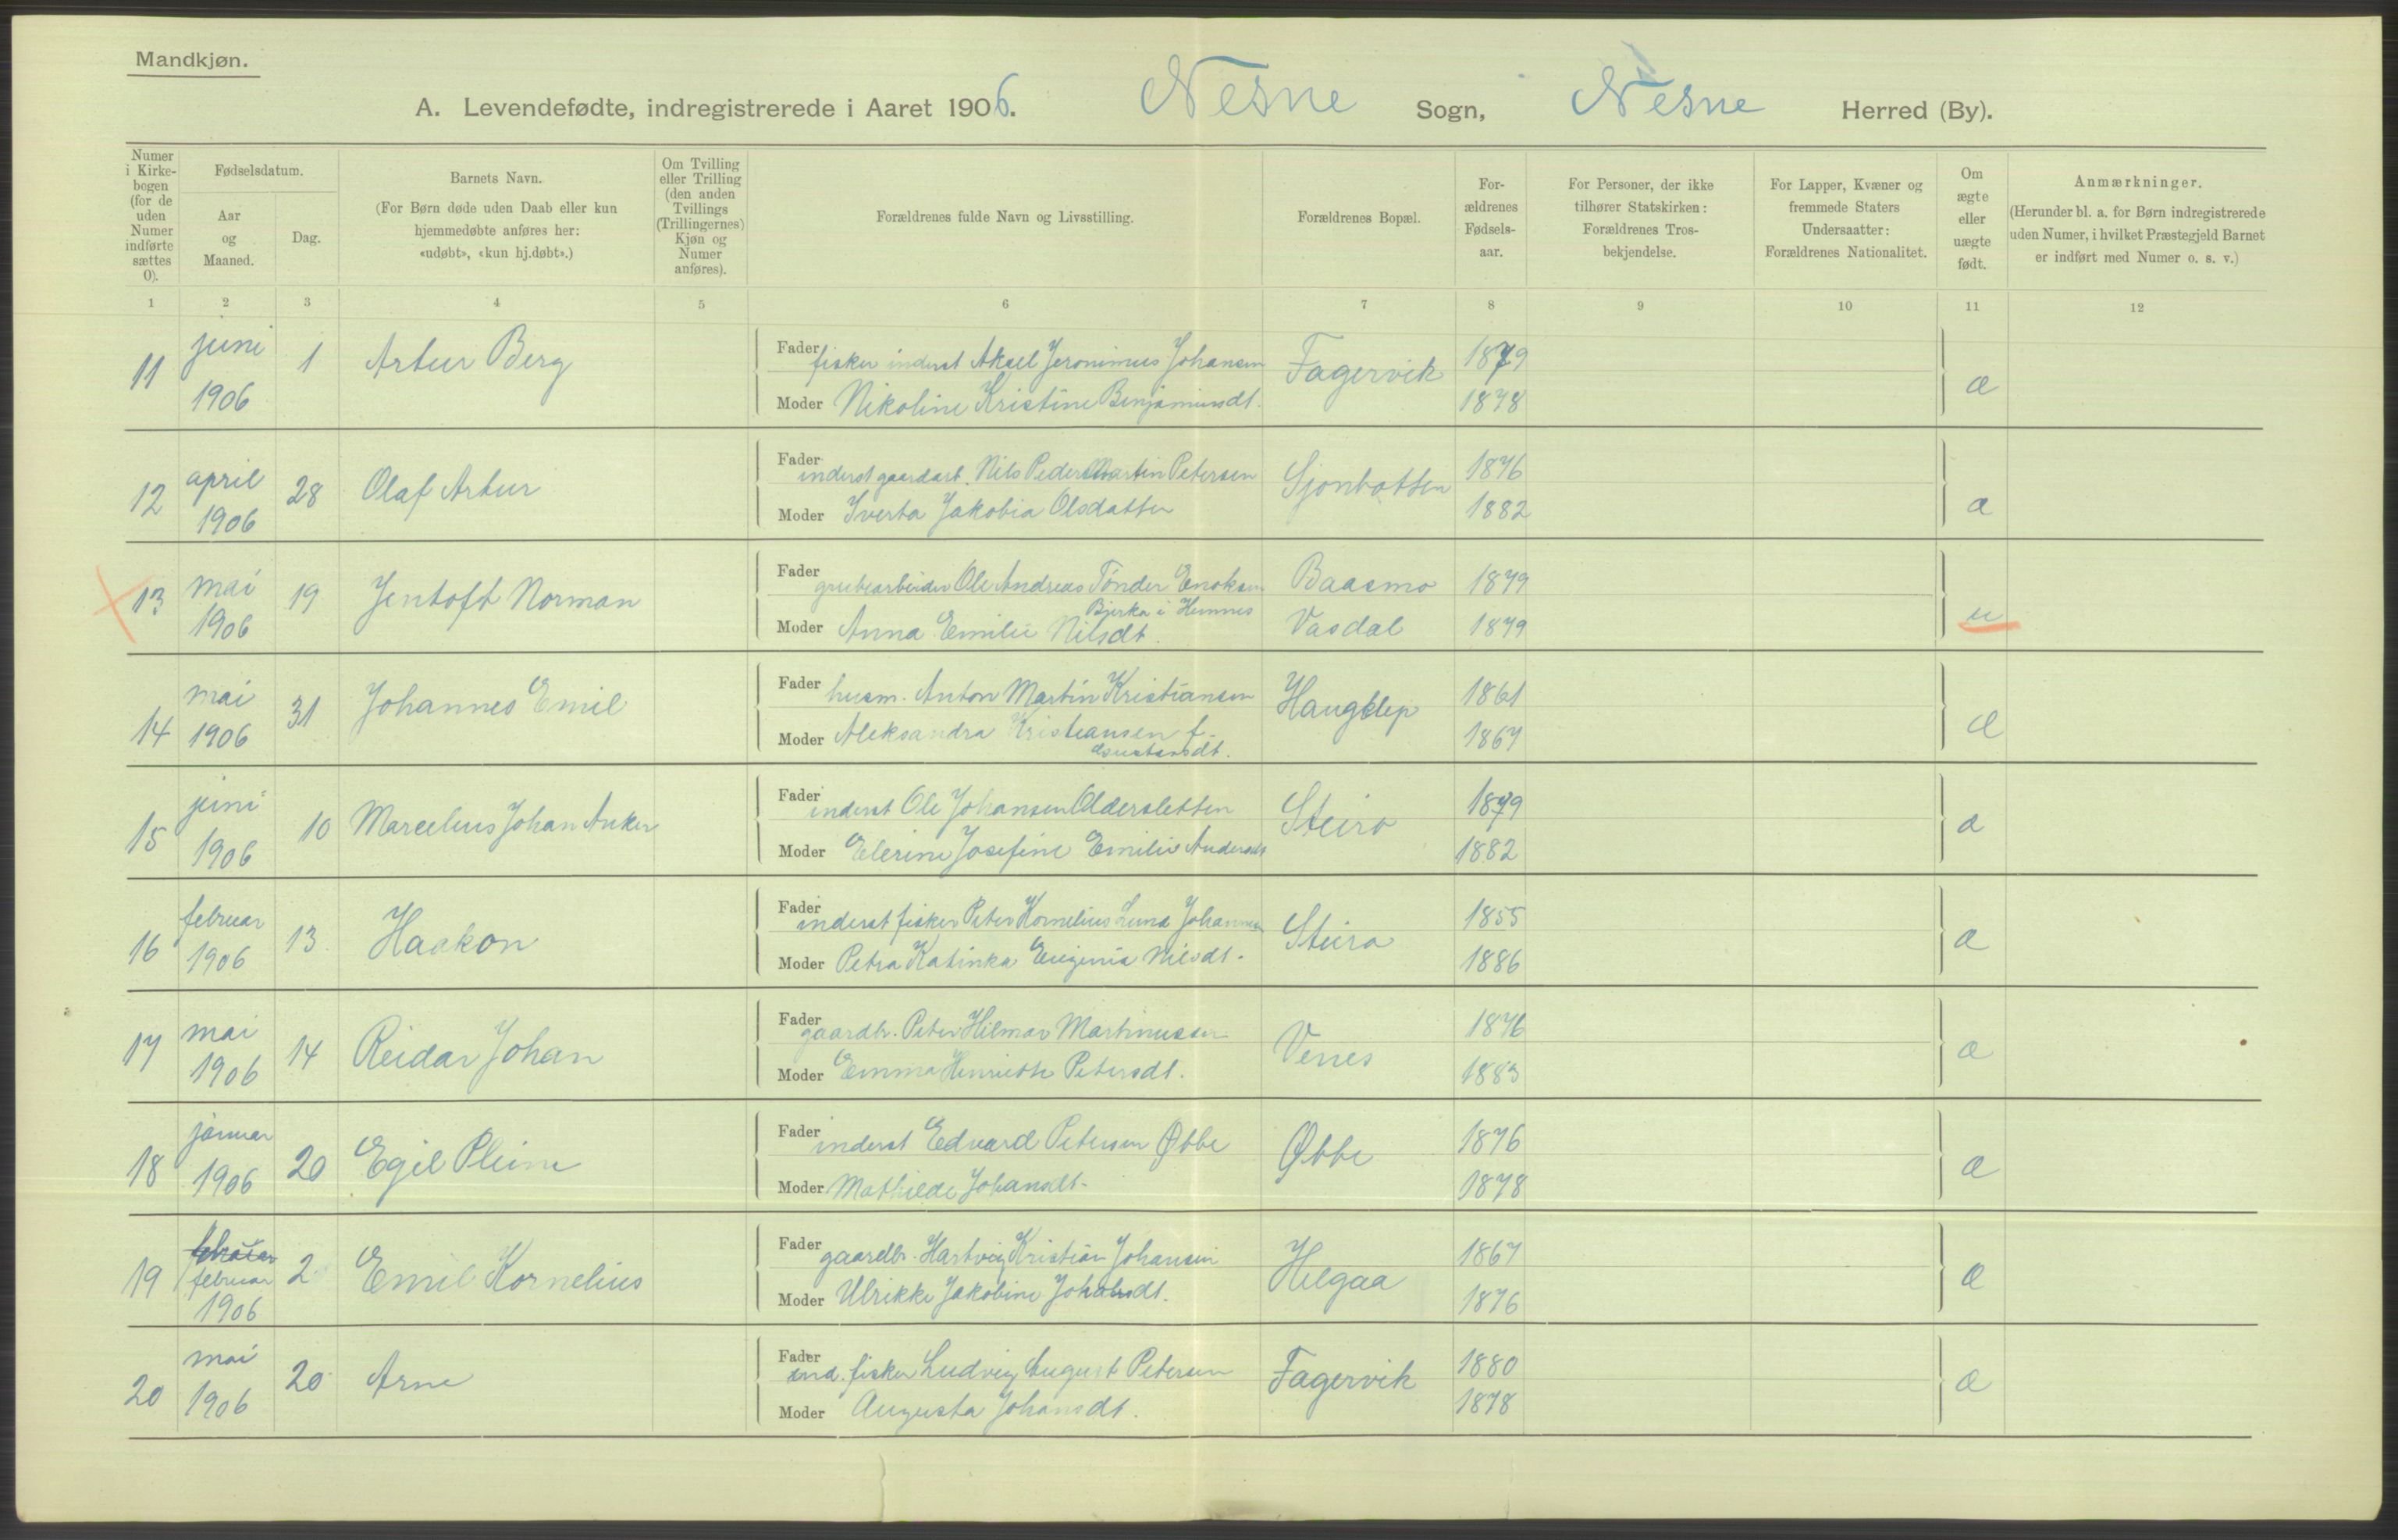 Mandkjøn.
A. Levendefødte, indregistrerede i Aaret 1906. Nesne Sogn, Nesne Herred (By).
Numer i Kirkebogen (for de uden Numer indførte sættes 0).
Fødselsdatum.
Aar og Maaned.
Dag.
Barnets Navn.
(For Børn døde uden Daab eller kun hjemmedøbte anføres her: «udøbt», «kun hj.døbt».)
Om Tvilling eller Trilling (den anden Tvillings (Trillingernes) Kjøn og Numer anføres).
Forældrenes fulde Navn og Livsstilling.
Forældrenes Bopæl.
Forældrenes Fødselsaar.
For Personer, der ikke tilhører Statskirken: Forældrenes Trosbekjendelse.
For Lapper, Kvæner og fremmede Staters Undersaatter: Forældrenes Nationalitet.
Om ægte eller uægte født.
Anmærkninger.
(Herunder bl. a. for Børn indregistrerede uden Numer, i hvilket Præstegjeld Barnet er indført med Numer o. s. v.)
1 2 3 4 5 6 7 8 9 10 11 12
11 juni 1906 1 Artur Berg
Fader fisker inderst Aksel Jeronimus Johansen Fagervik 1879
Moder Nikoline Kristine Benjaminsdt. 1878 æ
12 april 1906 28 Olaf Artur
Fader inderst gaardarb. Nils Peder Martin Petersen Sjonbotten 1876
Moder Iverta Jakobia Olsdatter 1882 æ
13 mai 1906 19 Jentoft Norman
Fader grubearbeider Ole Andreas Tönder Enoksen Baasmo 1879
Bjerka i Hemnes
Moder Anna Emilie Nilsdt. Vasdal 1879 u
14 mai 1906 31 Johannes Emil
Fader husm. Anton Martin Kristiansen Haugslep 1861
Moder Aleksandra Kristiansen f. 1867 æ
15 juni 1906 10 Marcelius Johan Anker
Fader inderst Ole Johansen Oldersletten Steiro 1879
Moder Elerine Josefine Emilie Andersdt 1882 æ
16 februar 1906 13 Haakon
Fader inderst fisker Peter Kornelius Lund Johannesen Steiro 1855
Moder Petra Katinka Eugenia Nilsdt. 1886 æ
17 mai 1906 14 Reidar Johan
Fader gaardbr. Peter Hilmar Martinussen Venes 1876
Moder Emma Henriette Petersdt. 1883 æ
18 januar 1906 20 Egil Pleim
Fader inderst Edvard Petersen Øbbe Øbbe 1876
Moder Mathilde Johansdt. 1878 æ
19 februar 1906 2 Emil Kornelius
Fader gaardbr. Hartvig Kristian Johansen Helgaa 1867
Moder Ulrikke Jakobine Johansdt. 1876 æ
20 mai 1906 20 Arne
Fader ind. fisker Ludvig August Petersen Fagervik 1880
Moder Augusta Johansdt. 1878 æ